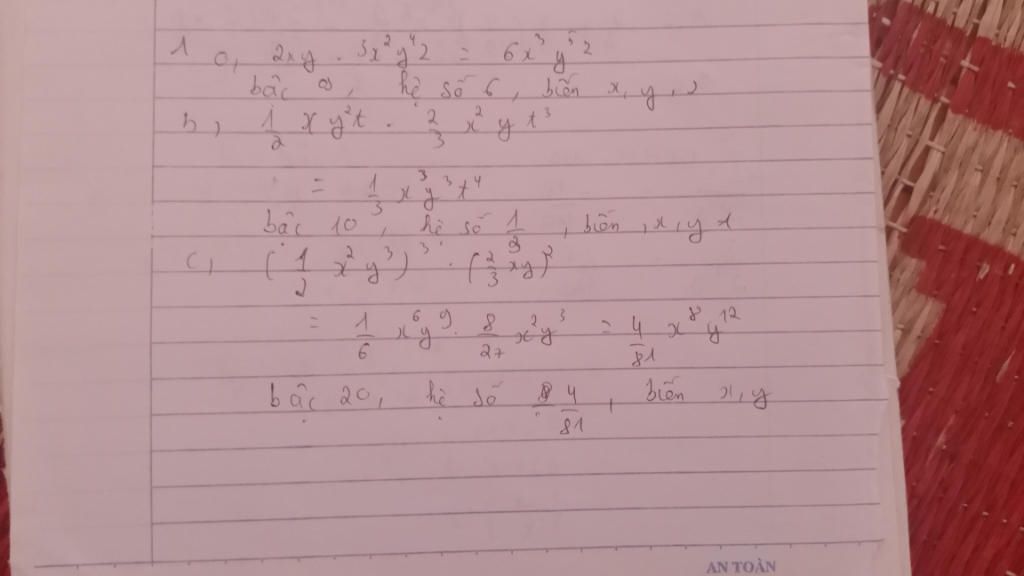 1 a, 2xy . 3x²y⁴z = 6x³y⁵z
bậc 8, hệ số 6, biến x, y, z
b, 1/2 xy²t . 2/3 x²yt³
= 1/3 x³y³t⁴
bậc 10, hệ số 1/3, biến, x, y t
c, (1/2 x²y³)³ . (2/3 xy)²
= 1/6 x⁶y⁹ . 8/27 x²y³ = 4/81 x⁸y¹²
bậc 20, hệ số 4/81, biến x, y
AN TOÀN